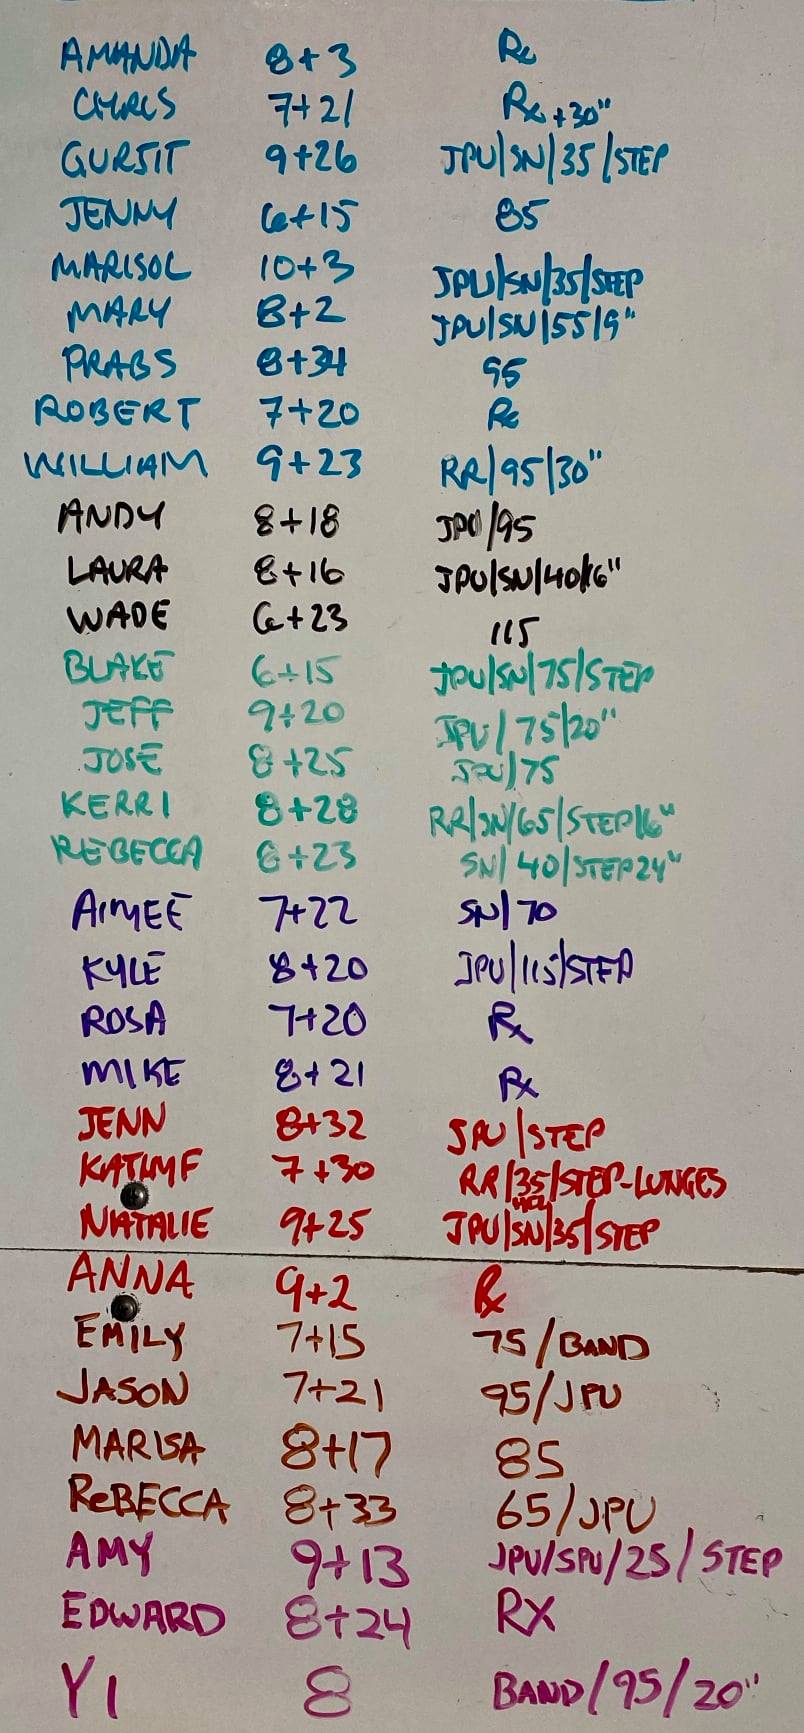 AMANDA 8+3 Rx
CHRIS 7+21 Rx +30"
GURJIT 9+26 JPU/SN/35/STEP
JENNY 6+15 85
MARISOL 10+3 JPU/SN/35/STEP
MARY 8+2 JPU/SN/55/9"
PRABS 8+34 95
ROBERT 7+20 Rx
WILLIAM 9+23 RR/95/30"
ANDY 8+18 JPU/95
LAURA 8+16 JPU/SN/40/6"
WADE 6+23 115
BLAKE 6+15 JPU/SN/75/STEP
JEFF 9+20 JPU/75/20"
JOSE 8+25 JPU/75
KERRI 8+28 RR/SN/65/STEP16"
REBECCA 8+23 SN/40/STEP24"
AIMEE 7+22 SN/70
KYLE 8+20 JPU/115/STEP
ROSA 7+20 Rx
MIKE 8+21 Rx
JENN 8+32 JPU/STEP
7+30 RR/35/STEP-LUNGES
NATALIE 9+25 JPU/SN/35/STEP
ANNA 9+2 Rx
EMILY 7+15 75/BAND
JASON 7+21 95/JPU
MARISA 8+17 85
ReBECCA 8+33 65/JPU
AMY 9+13 JPU/SPU/25/STEP
EDWARD 8+24 RX
YI 8 BAND/95/20"